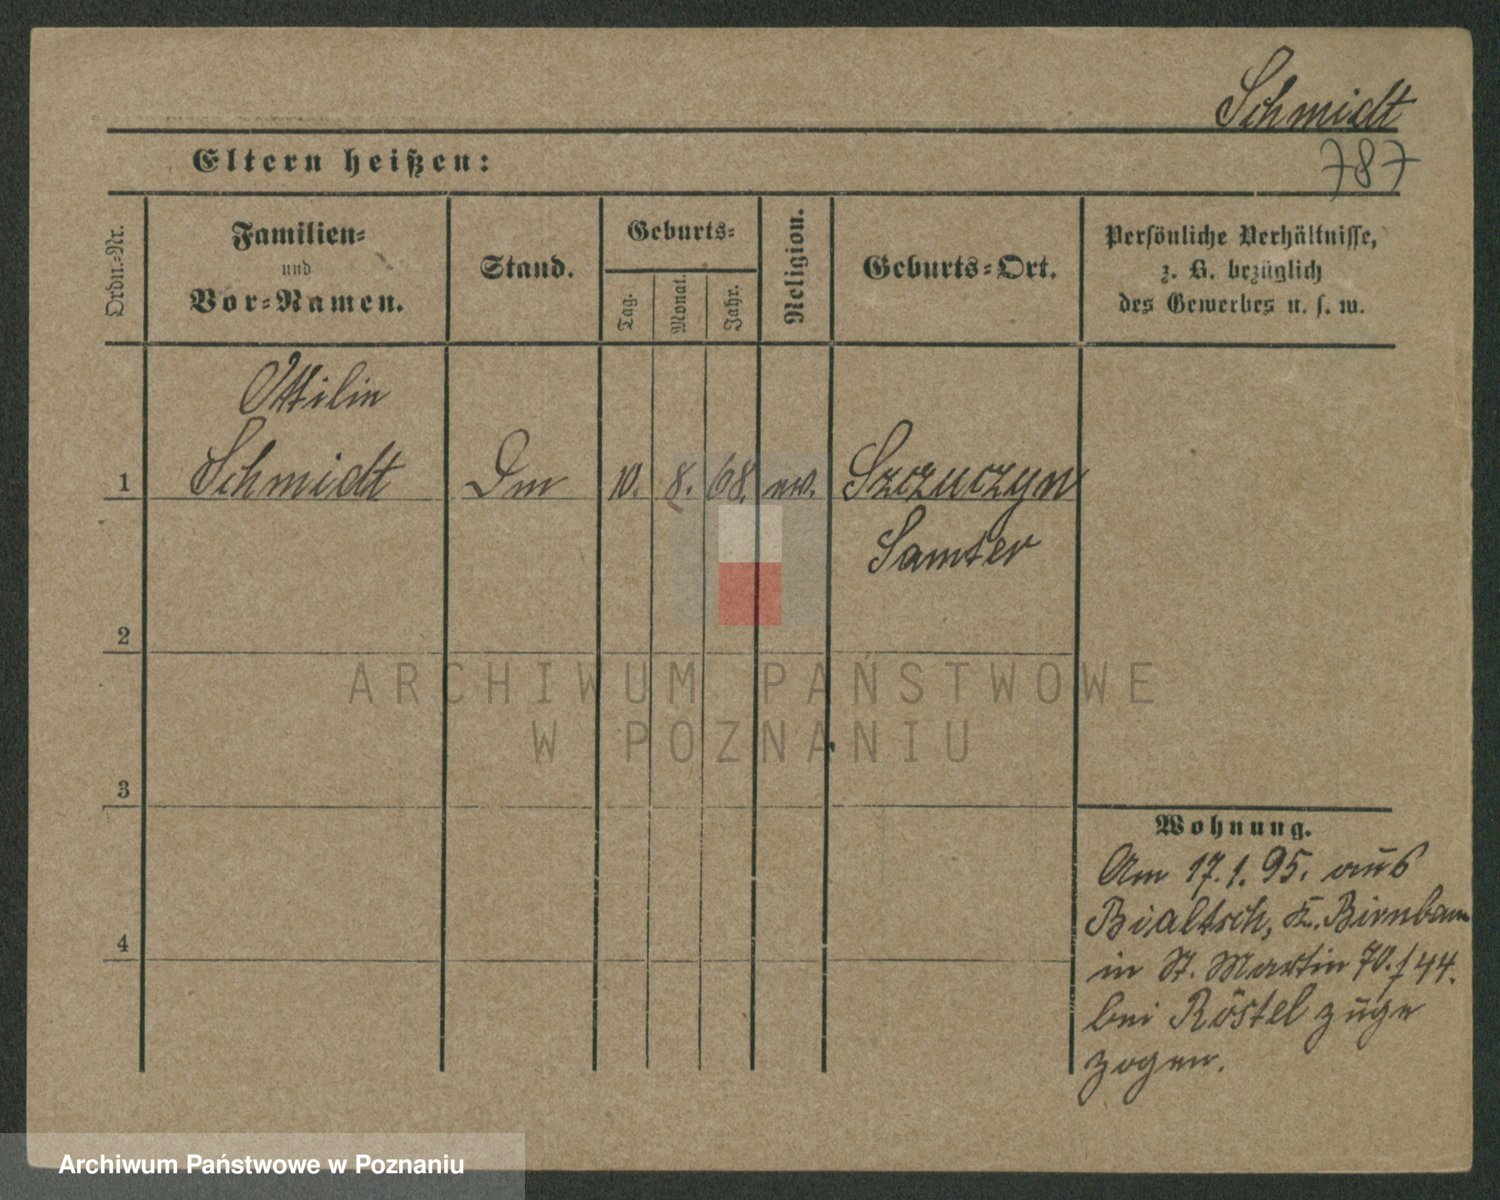 Schmidt
Eltern heißen:
787
Ordn.-Nr.
Familien-
und
Vor-Namen.
Stand.
Geburts-
Tag.
Monat.
Jahr.
Religion.
Geburts-Ort.
Persönliche Verhältnisse,
z. B. bezüglich
des Gewerbes u. s. w.
Ottilie
1 Schmidt 10. 8. 68. ev. Szczuczyn
Samter
2
3
4
Wohnung.
Am 17.1.95. aus
Bialtsch, K. Birnbaum
in St. Martin 70./44.
bei Röstel zuge
zogen.
ARCHIWUM PAŃSTWOWE
W POZNANIU
Archiwum Państwowe w Poznaniu